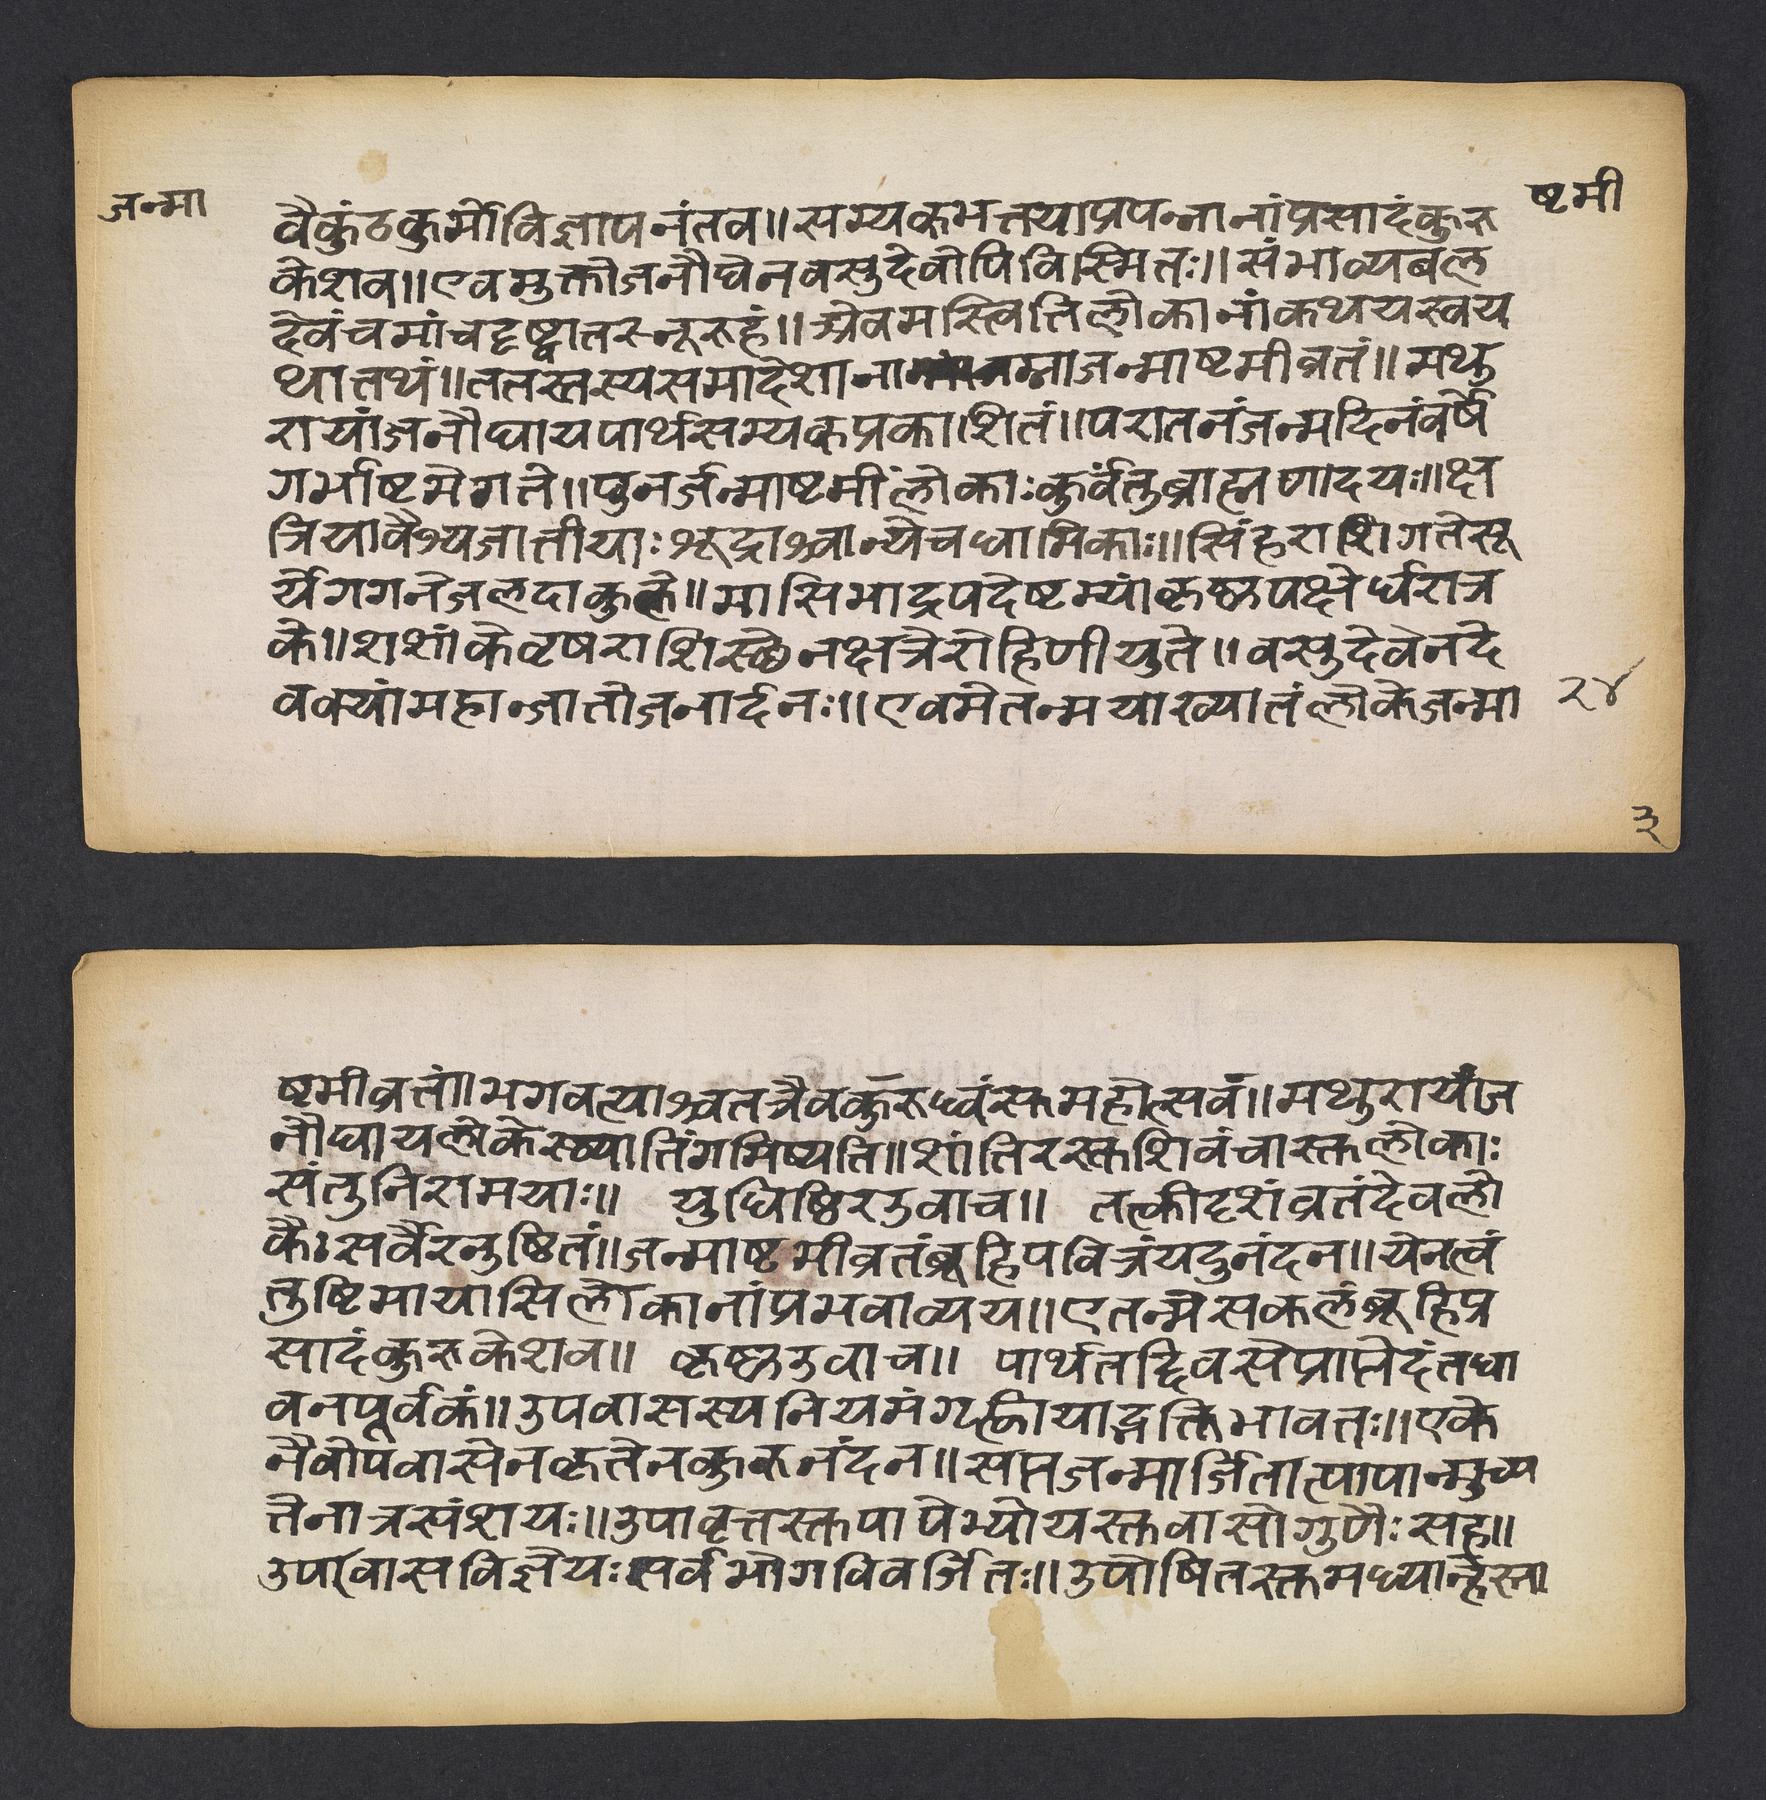 जन्मा
ष्टमी
वैकुंठकुर्मोविज्ञापनंतव॥सम्यकभत्तयाप्रपन्नानांप्रसादंकुरु
केशव॥एवमुक्तोजनौघेनवसुदेवोपिविस्मितः॥संभाव्यबल
देवंचमांचदृष्ट्वातस्नूरुहं॥अेवमस्त्वितिलोकानांकथयस्वय
थातथं॥ततस्तस्यसमादेशानाम्नाजन्माष्टमीव्रतं॥मथु
रायांजनौघायपार्थसम्यकप्रकाशितं॥परातनंजन्मदिनंवर्षे
गर्भाष्टमेगते॥पुनर्जन्माष्टमीलोकाःकुर्वंतुब्राह्मणादयः॥क्ष
त्रियावैश्यजातीयाःशूद्राश्चान्येचधामिकाः॥सिंहराशिगतेसू
र्येगगनेजलदाकुले॥मासिभाद्रपदेष्टम्यांकृष्णपक्षेर्धरात्र
के॥शशांकेवृषराशिस्छेनक्षत्रेरोहिणीयुते॥वसुदेवेनदे
वक्यांमहान्जातोजनार्दनः॥एवमेतन्मयाख्यातंलोकेजन्मा
२४
३
ष्टमीव्रतां॥भगवत्याश्चतत्रैवकुरूध्वंस्तमहोत्सवं॥मथुरायांज
नौघायलोकेस्ख्यातिंगमिष्यति॥शांतिरस्तशिवंचास्तलोकाः
संतुनिरामयाः॥ युधिष्ठिरउवाच॥ तत्कीदृशंव्रतंदेवलो
कैःसर्वैरनुष्ठितं॥जन्माष्टमीव्रतंब्रूहिपवित्रंयदुनंदन॥येनत्वं
तुष्टिमायासिलोकानांप्रभवाव्यय॥एतन्मेसकलंब्रूहिप्र
सादंकुरुकेशव॥ कृष्णउवाच॥ पार्थतद्दिवसेप्राप्तेदंतधा
वनपूर्वकं॥उपवासस्यनियमंगृह्णीयाद्भक्तिभावतः॥एके
नैवोपवासेनकृतेनकुरुनंदन॥सप्तजन्मार्जितात्पापान्मुच्य
तेनात्रसंशयः॥उपावृत्तस्तपापेभ्योयस्तवासोगुणैःसह॥
उपावासविज्ञेयःसर्वभोगविवर्जितः॥उपोषितस्तमध्यान्हेस्ना